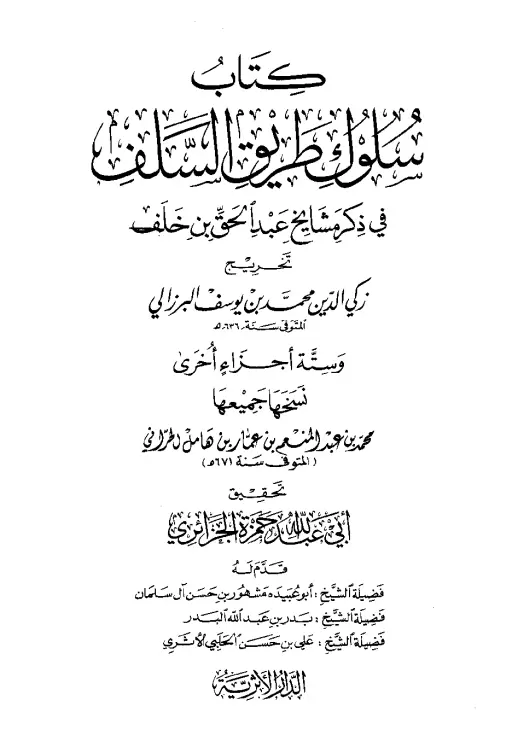 كِتَابُ
سُلُوكِ طَرِيقِ السَّلَفِ
في ذِكرِ مَشَايِخِ عَبْدِ الحَقِّ بْنِ خَلَفٍ
تَخريج
زكي الدين محمد بن يوسف البرزالي
المتوفى سنة ٦٣٦هـ
وَسِتَّة أجزَاءٍ أُخرَى
نَسَخَهَا جَمِيعهَا
محمد بن عبد المنعم بن عمار بن هامل الحراني
(المتوفى سنة ٦٧١هـ)
تحقيق
أبي عبد الله حمزة الجزائري
قدَّم لَهُ
فَضِيلَة الشَّيخ : أبو عُبَيدَه مَشهُور بن حَسَن آل سَلمان
فَضِيلَة الشَّيخ : بَدر بن عَبد اللَّه البَدر
فَضِيلَة الشَّيخ : عَلي بن حَسَن الحَلبي الأثَري
الدَّارُ الأَثَرِيَّة